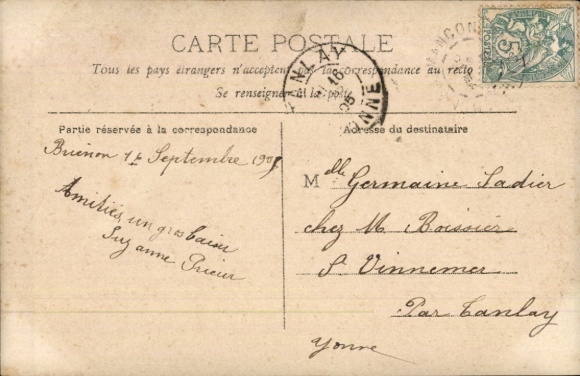 CARTE POSTALE
Tous les pays étrangers n'acceptent pas la correspondance au recto
Se renseigner à la poste
TANLAY
16
05
YONNE
5
Partie réservée à la correspondance
Brienon 1 Septembre
Amitiés, un gros baiser
Suzanne Prieur
Adresse du destinataire
Mdlle Germaine Sadier
chez M. Boissier
St Vinnemer
Par Tanlay
Yonne